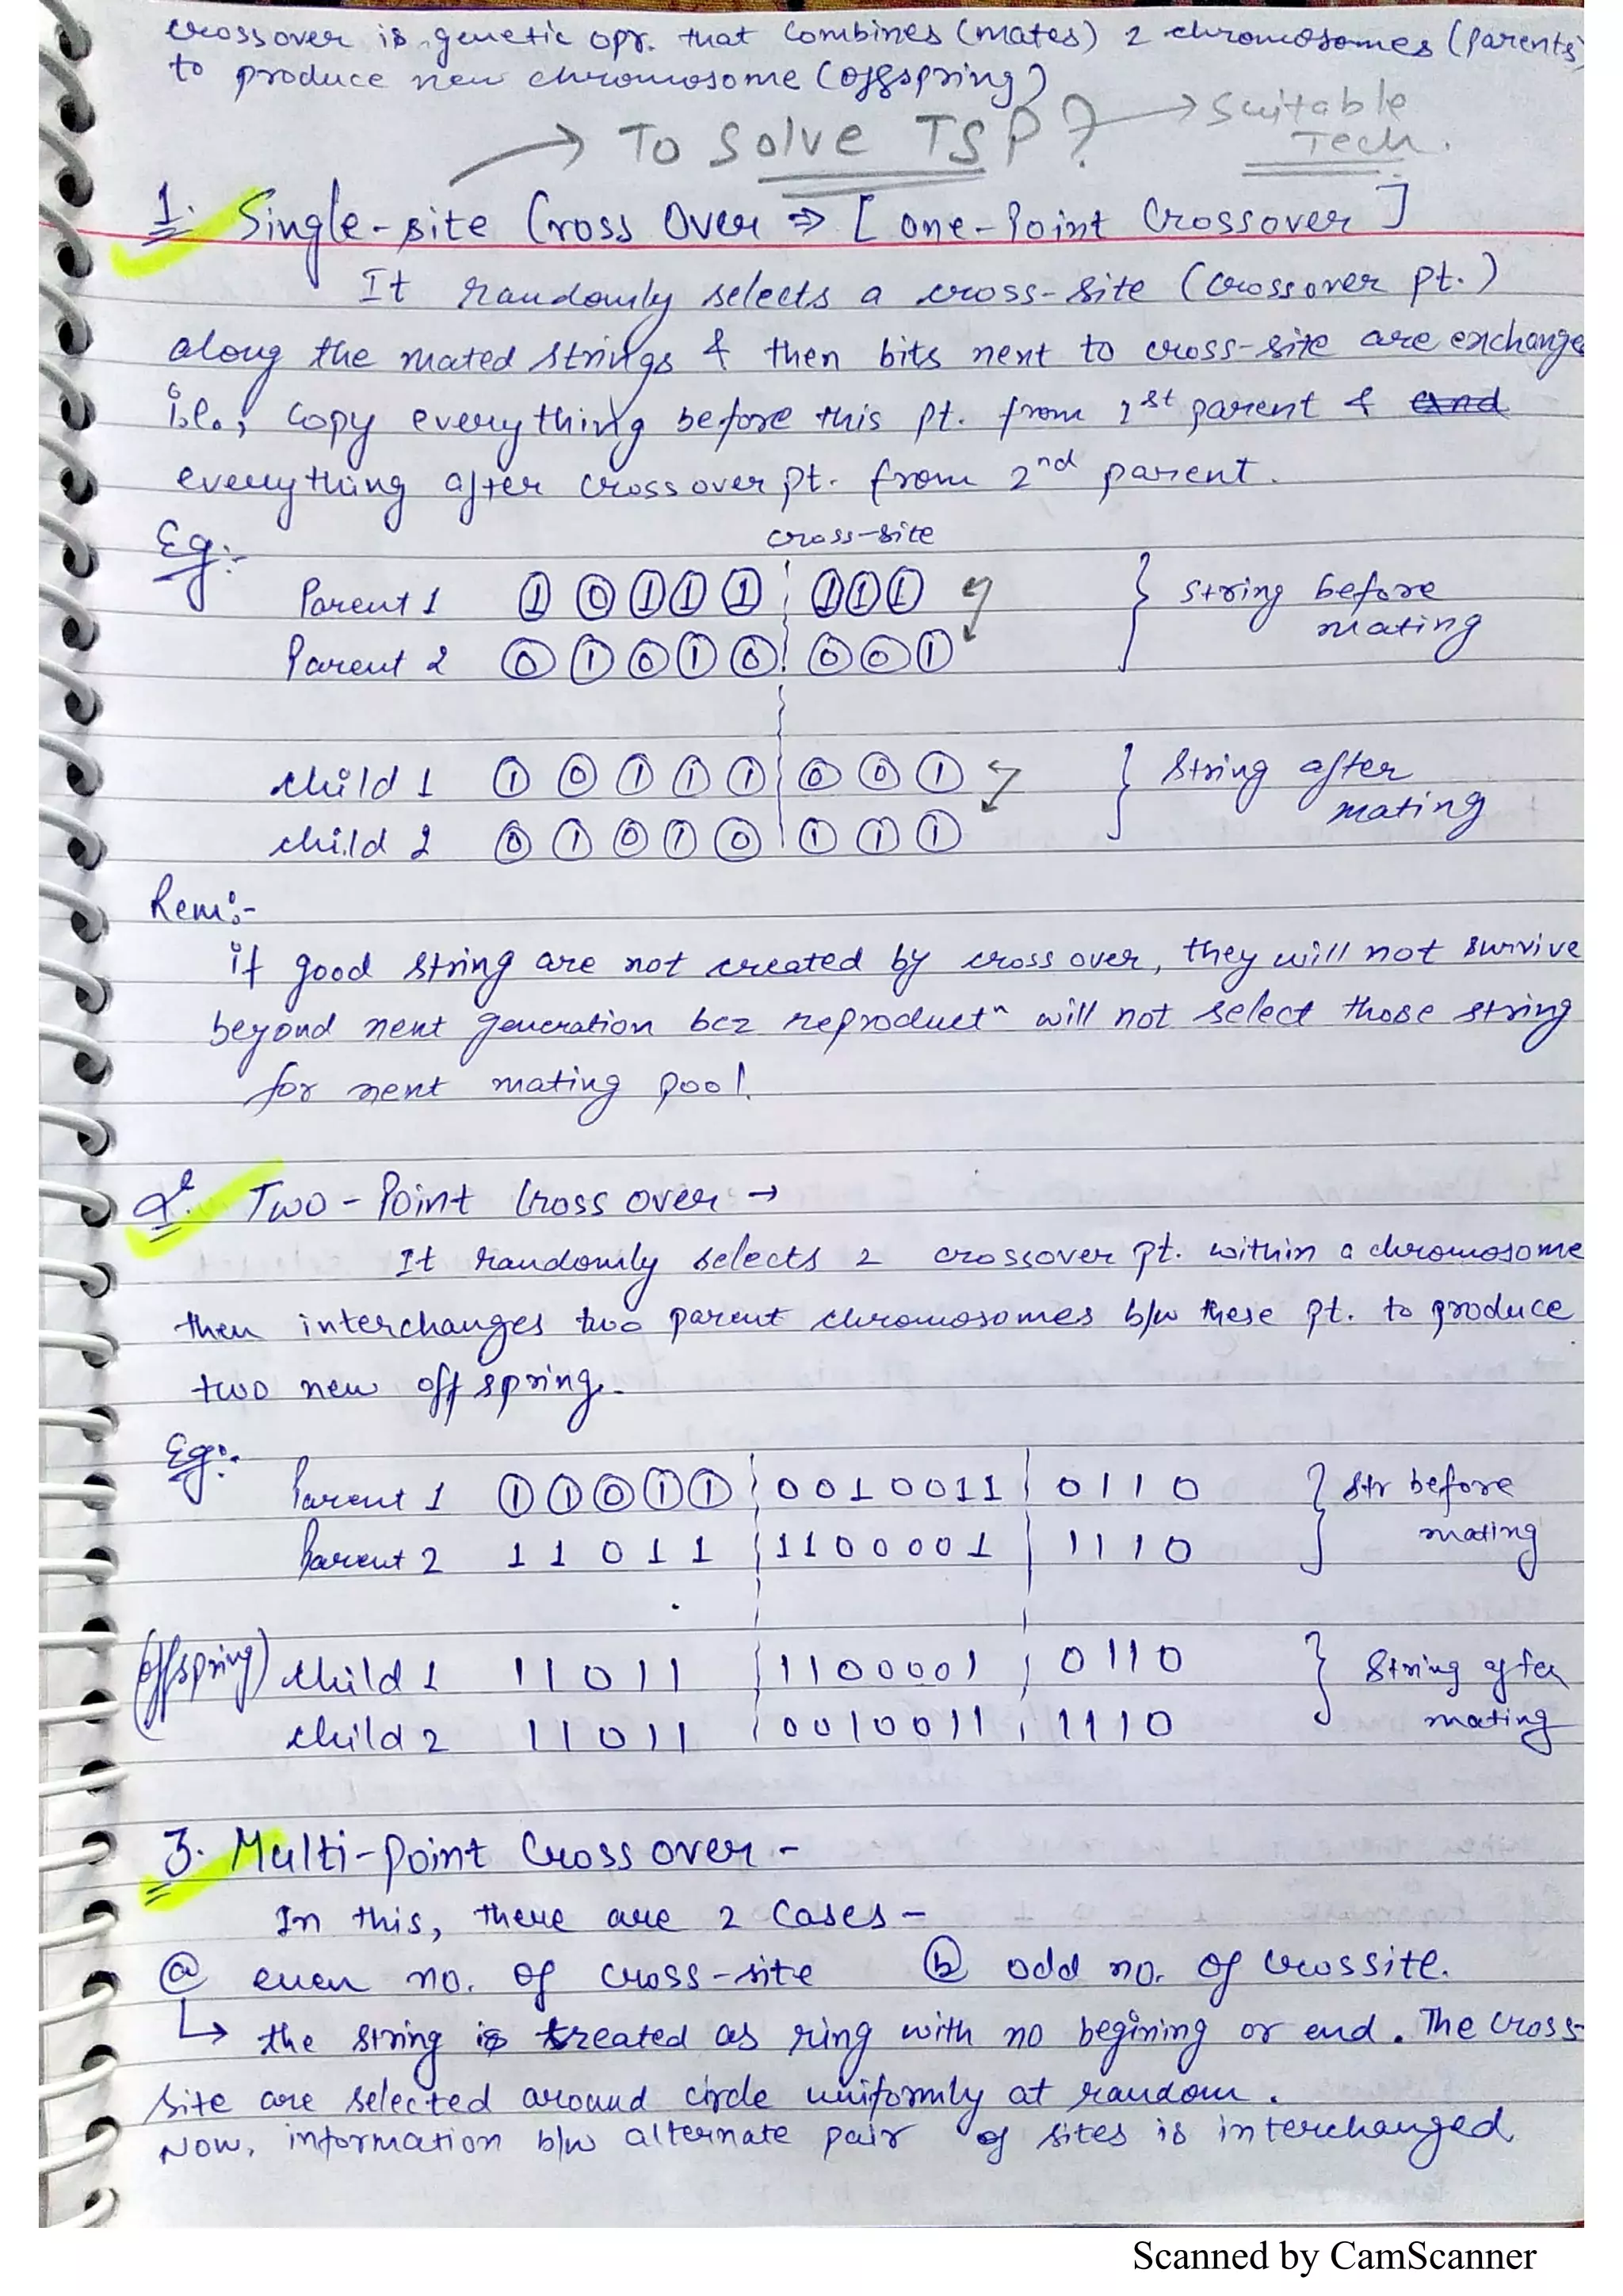 crossover is genetic opr. that combines (mates) 2 chromosomes (parents)
to produce new chromosome (offspring)
→ To Solve TSP? → Suitable
Tech.
1. Single-site Cross Over ⇒ [one-Point Crossover]
It randomly selects a cross-site (crossover pt.)
along the mated strings & then bits next to cross-site are exchange
i.e., copy everything before this pt. from 1st parent & and
everything after crossover pt. from 2nd parent.
Eg:- cross-site
Parent 1 1 0 1 1 1 1 1 1 } string before
mating
Parent 2 0 1 0 1 0 0 0 1
child 1 1 0 1 1 1 0 0 1 } string after
mating
child 2 0 1 0 1 0 1 1 1
Rem:-
if good string are not created by cross over, they will not survive
beyond next generation bcz reproductn will not select those string
for next mating pool.
2. Two-Point Cross over →
It randomly selects 2 crossover pt. within a chromosome
then interchanges two parent chromosomes b/w these pt. to produce
two new offspring.
Eg:-
Parent 1 1 1 0 1 1 0 0 1 0 0 1 1 0 1 1 0 } str before
mating
Parent 2 1 1 0 1 1 1 1 0 0 0 0 1 1 1 1 0
(offspring) child 1 1 1 0 1 1 1 1 0 0 0 0 1 0 1 1 0 } string after
mating
child 2 1 1 0 1 1 0 0 1 0 0 1 1 1 1 1 0
3. Multi-Point Cross over -
In this, there are 2 cases -
ⓐ even no. of cross-site ⓑ odd no. of crossite.
↳ the string is treated as ring with no begining or end. The cross-
site are selected around circle uniformly at random.
Now, information b/w alternate pair of sites is interchanged
Scanned by CamScanner